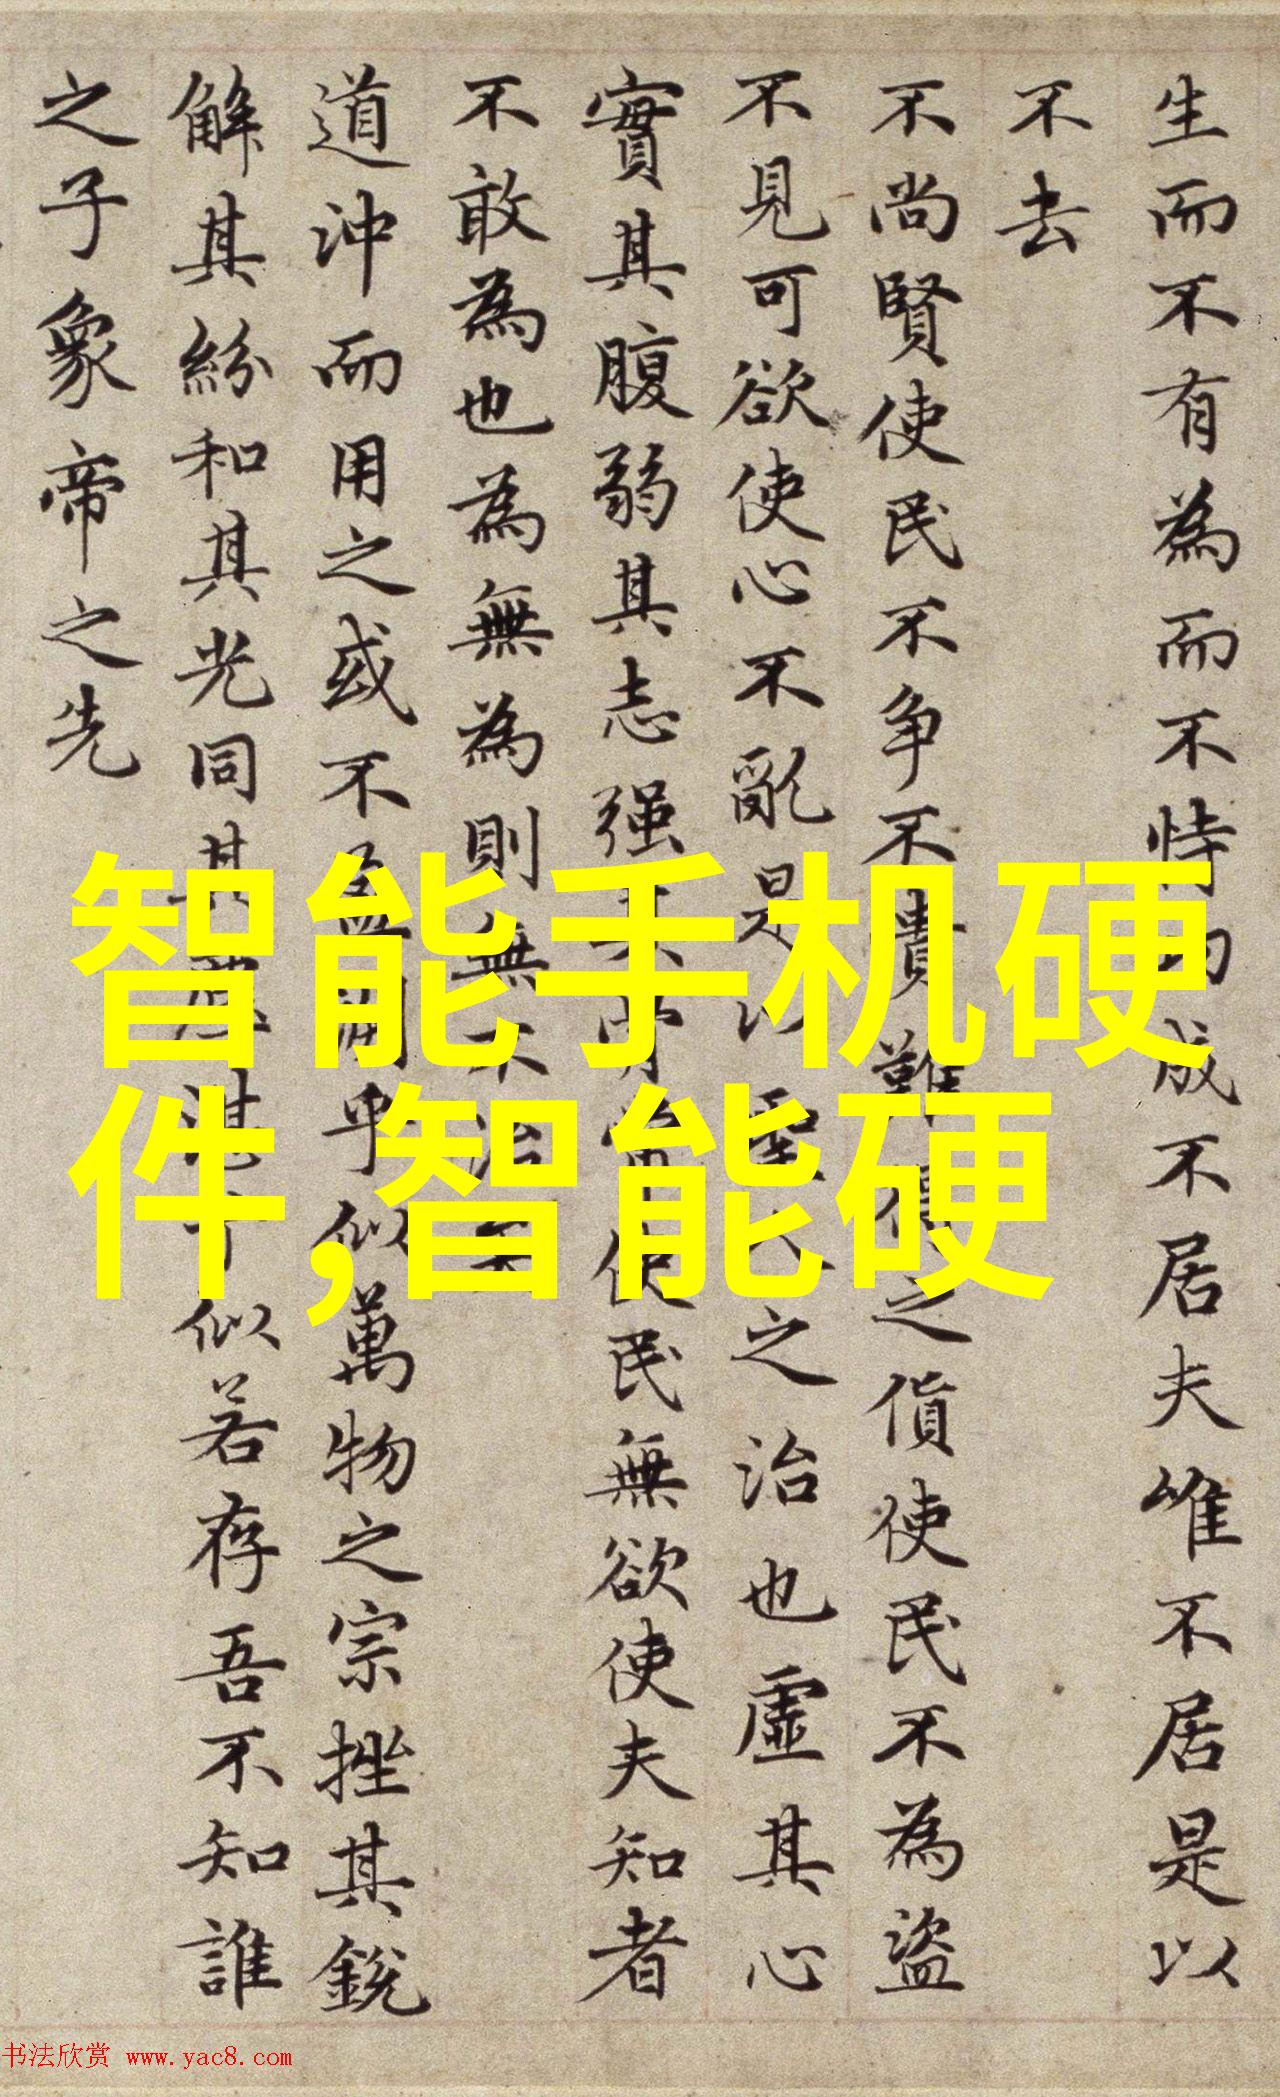 生而不有為而不恃功成不居夫唯不居是以
不去
不尚賢使民不争不貴難得之貨使民不為盜
不見可欲使心不亂是以聖人之治也虛其心
實其腹弱其志强其骨常使民無欲使夫知者
不敢為也為無為則無不治矣
道沖而用之或不盈淵乎似萬物之宗挫其銳
解其紛和其光同其塵湛兮似若存吾不知誰
之子象帝之先
智能手机硬
件,智能硬
书法欣赏 www.yac8.com